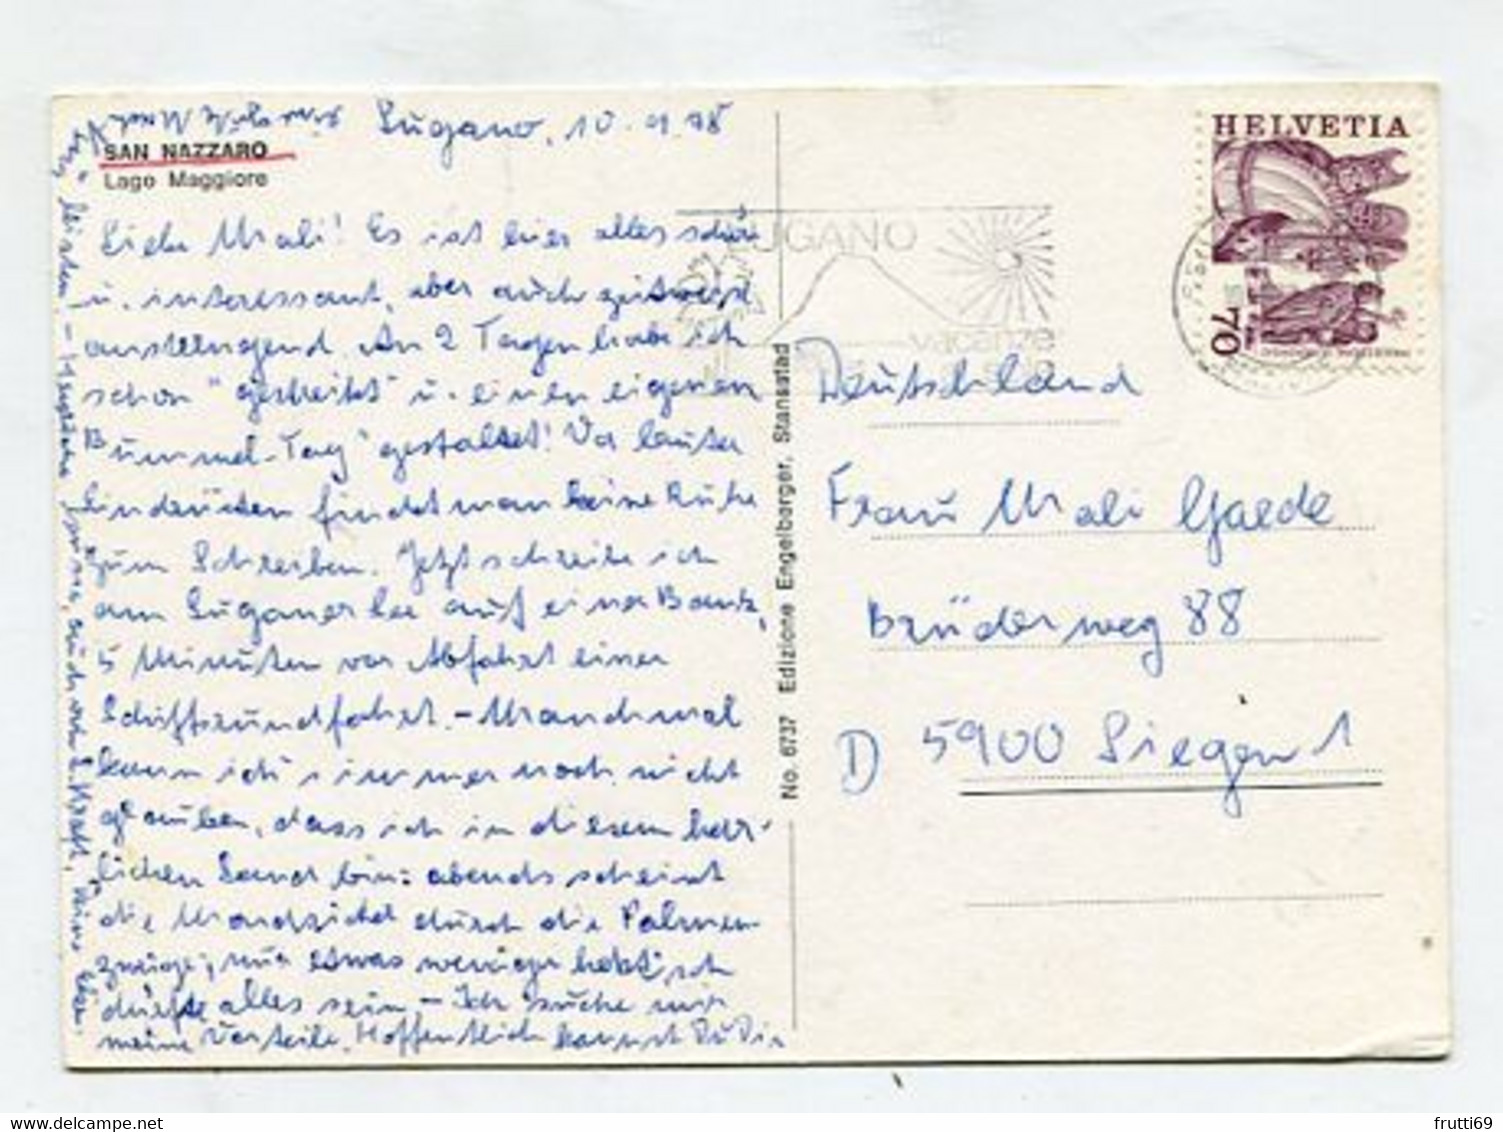 Lugano, 10.9.78
SAN NAZZARO
Lago Maggiore
Liebe Mali! Es ist hier alles schön
u. interessant, aber auch zeitweise
anstrengend. An 2 Tagen habe ich
schon "gestreikt" u. einen eigenen
"Bummel-Tag" gestaltet! Vor lauter
Eindrücken findet man keine Ruhe
zum Schreiben. Jetzt schreibe ich
am Luganer See auf einer Bank,
5 Minuten vor Abfahrt einer
Schiffsrundfahrt. - Manchmal
kann ich immer noch nicht
glauben, dass ich in diesem herr-
lichen Land bin: abends scheint
die Mondsichel durch die Palmen-
zweige; nur etwas weniger
dürfte alles sein. - Ich suche mir
meine Vorteile. Hoffentlich kannst Du Dir
No. 6737 Edizione Engelberger, Stansstad
LUGANO
vacanze
HELVETIA
70
Deutschland
Frau Mali Gaede
Brüderweg 88
D 5900 Siegen 1
frutti69